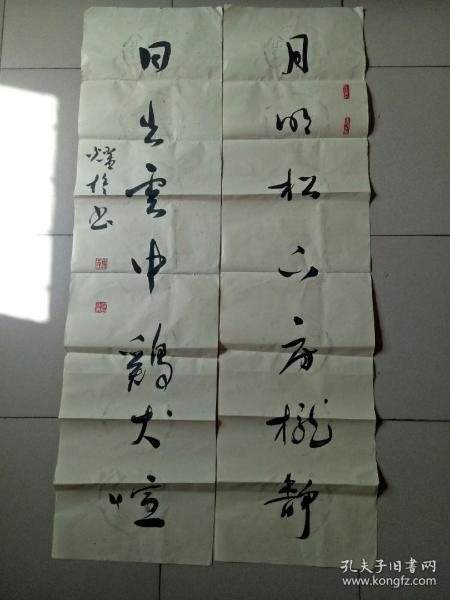 月明松下房栊静
日出云中鷄犬喧
孔夫子旧书网
www.kongfz.com